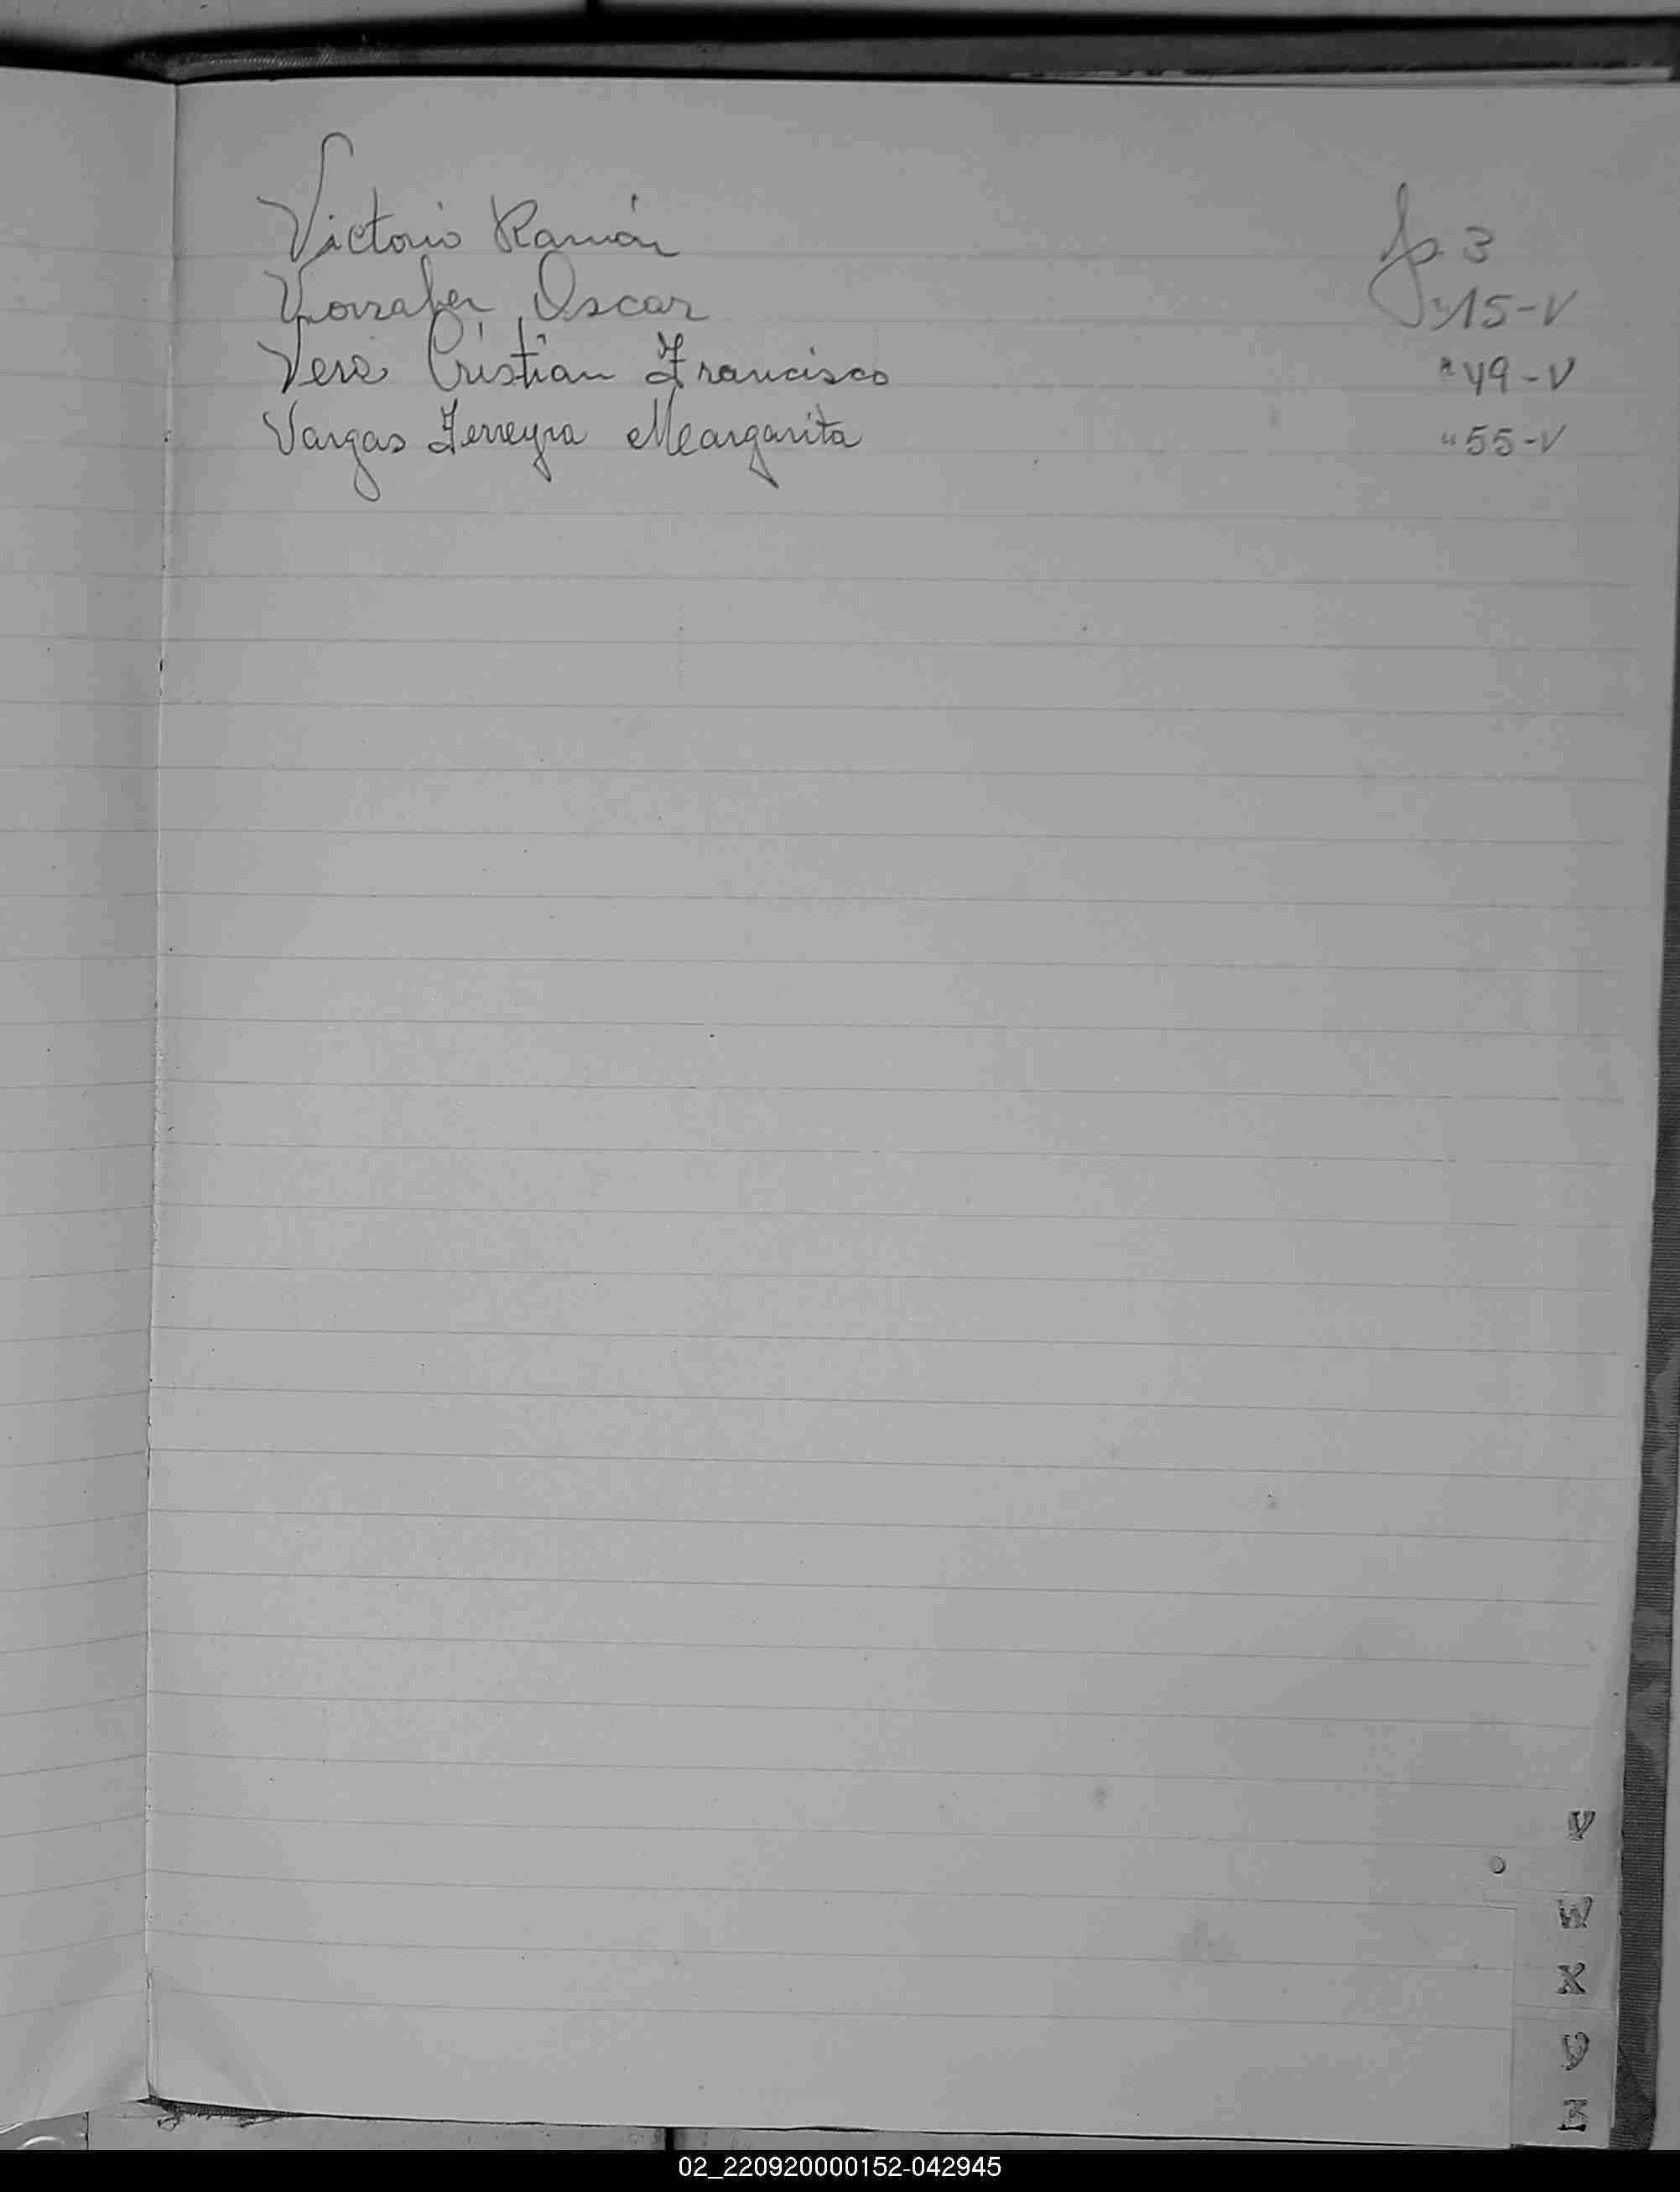 Victorio Ramón fs 3
Oscar "15-V
Vera Cristian Francisco "49-V
Vargas Ferreyra Margarita "55-V
V
W
X
Y
Z
02_220920000152-042945